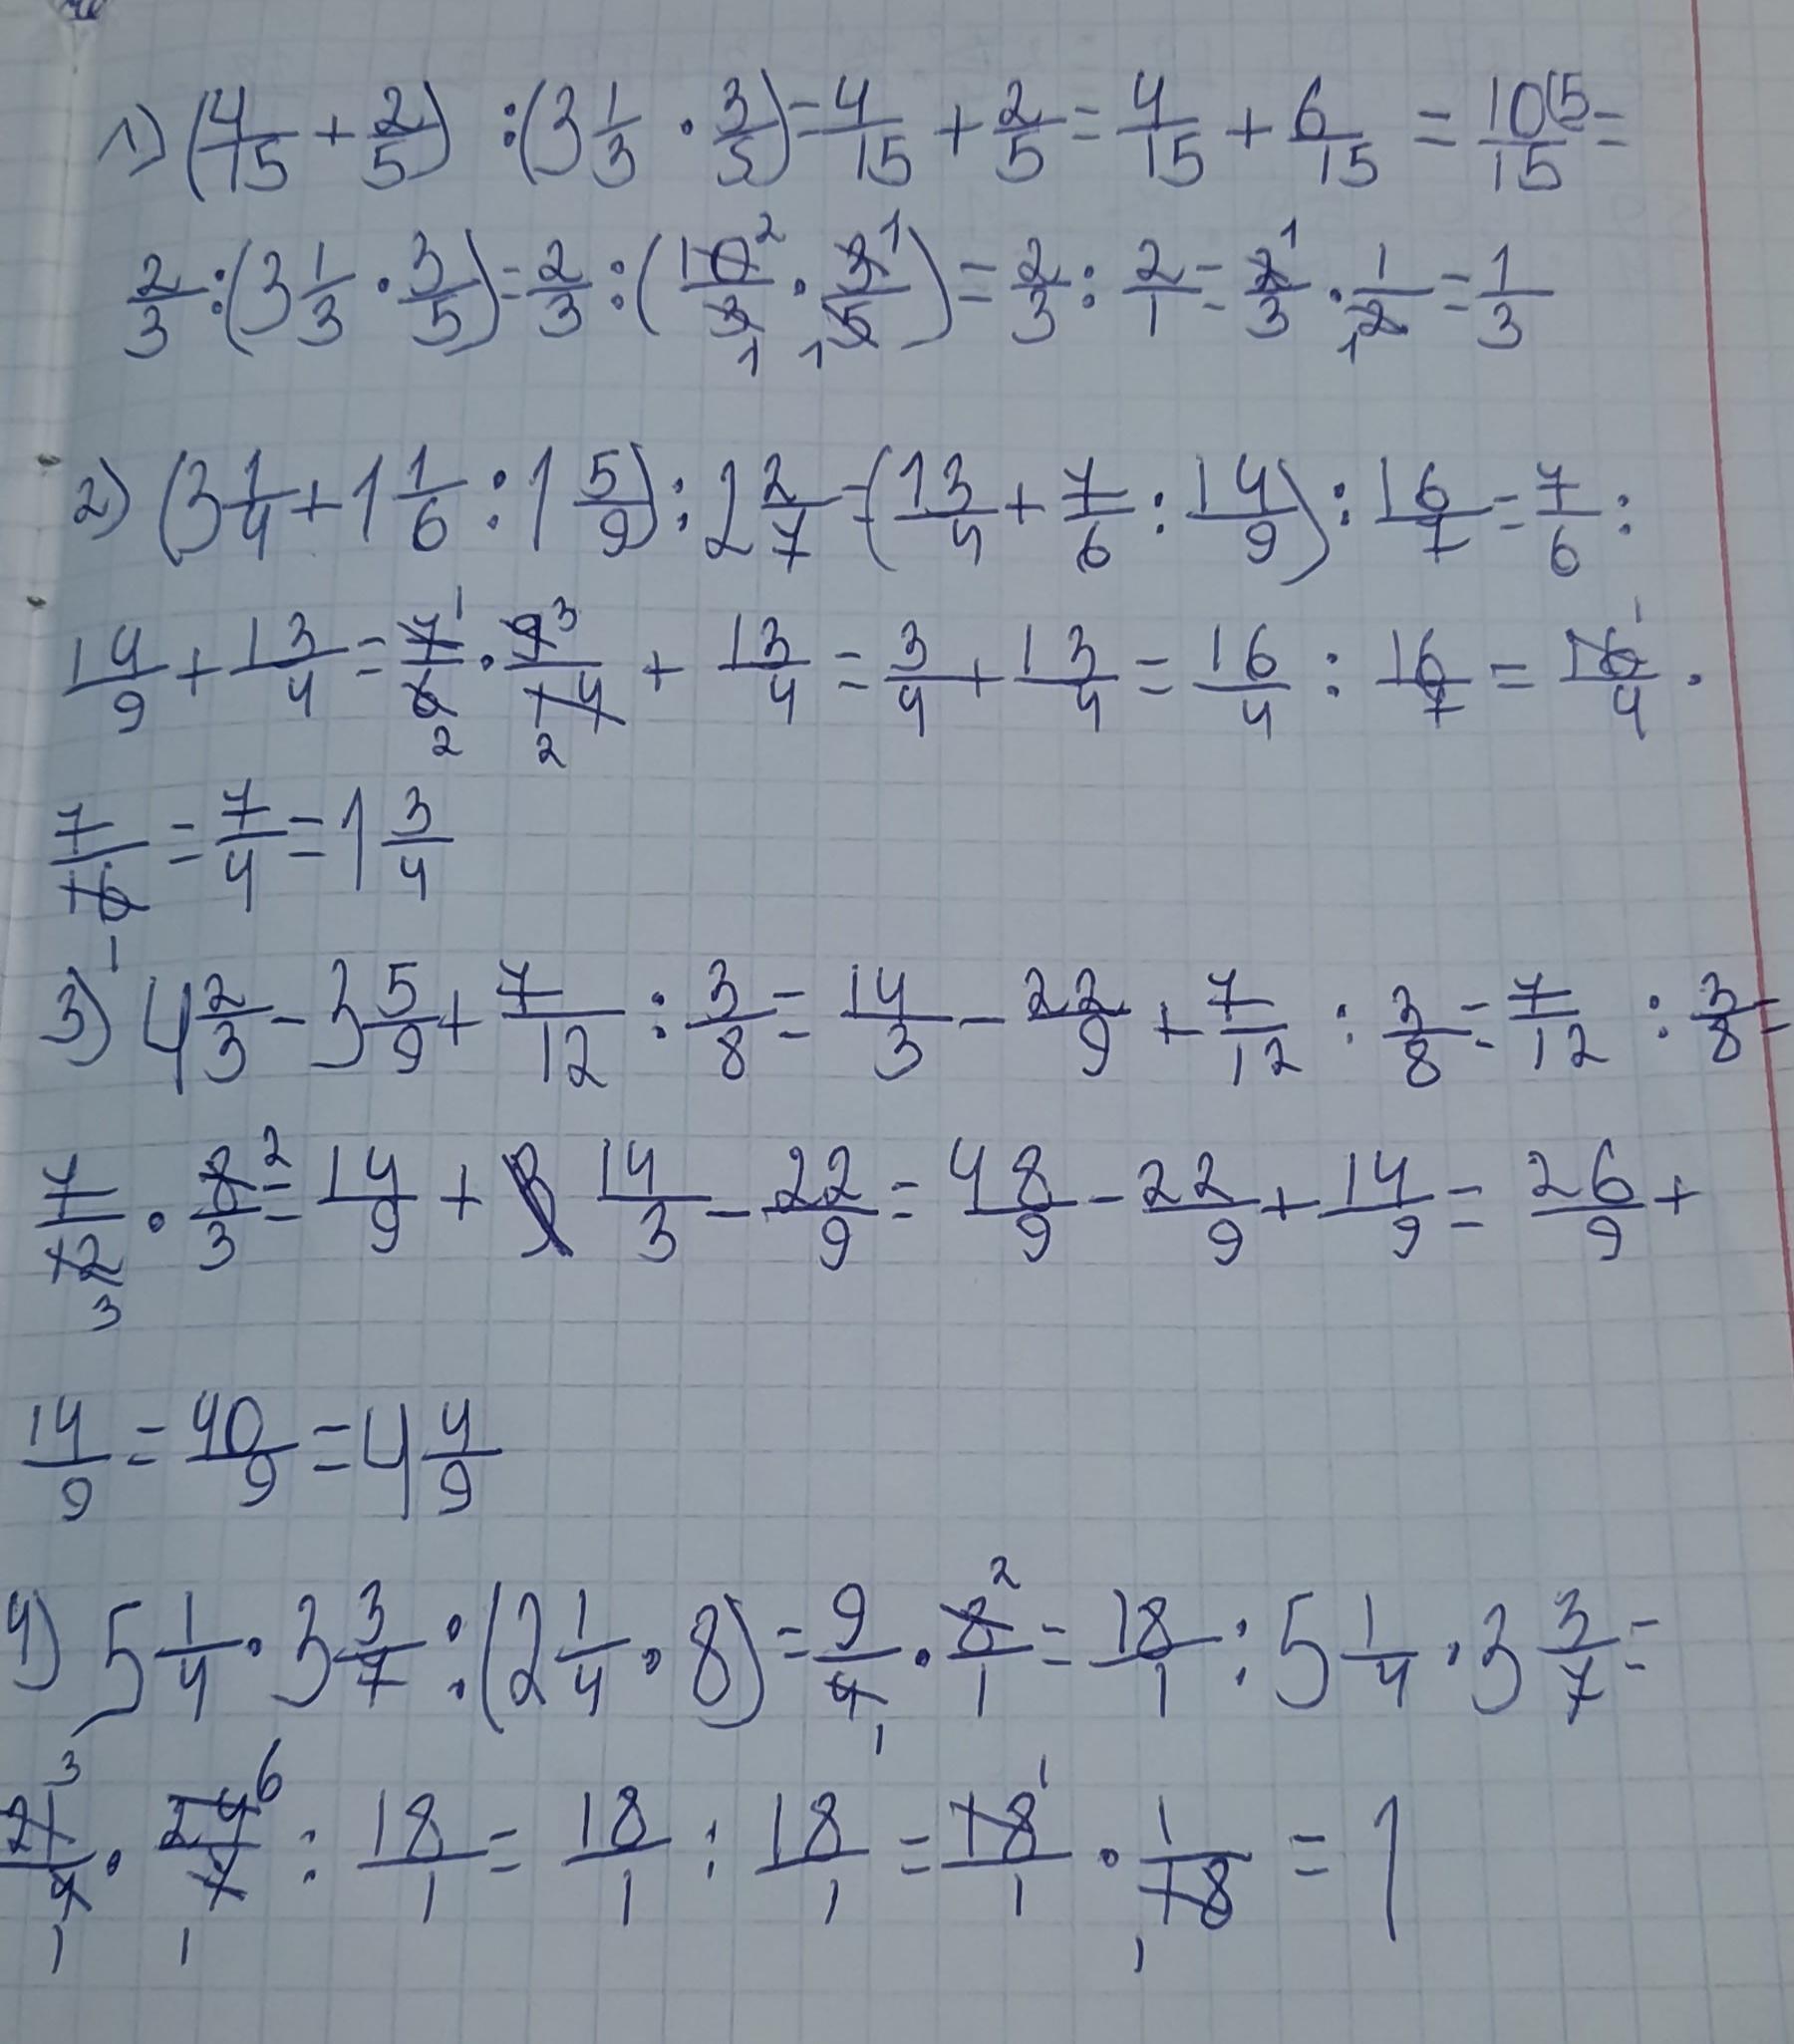 1) (4/15 + 2/5) : (3 1/3 · 3/5) = 4/15 + 2/5 = 4/15 + 6/15 = 10(5/15 =
2/3 : (3 1/3 · 3/5) = 2/3 : (10²/3₁ · 3¹/5₁) = 2/3 : 2/1 = 2¹/3 · 1/2₁ = 1/3
2) (3 1/4 + 1 1/6 : 1 5/9) : 2 2/7 = (13/4 + 7/6 : 14/9) : 16/7 = 7/6 :
14/9 + 13/4 = 7¹/6₂ · 9³/14₂ + 13/4 = 3/4 + 13/4 = 16/4 : 16/7 = 16¹/4 ·
7/16₁ = 7/4 = 1 3/4
3) 4 2/3 - 3 5/9 + 7/12 : 3/8 = 14/3 - 22/9 + 7/12 : 3/8 = 7/12 : 3/8 =
7/12₃ · 8²/3 = 14/9 + 14/3 - 22/9 = 48/9 - 22/9 + 14/9 = 26/9 +
14/9 = 40/9 = 4 4/9
4) 5 1/4 · 3 3/7 : (2 1/4 · 8) = 9/4₁ · 8²/1 = 18/1 : 5 1/4 · 3 3/7 =
21³/4₁ · 24⁶/7₁ : 18/1 = 18/1 : 18/1 = 18¹/1 · 1/18₁ = 1